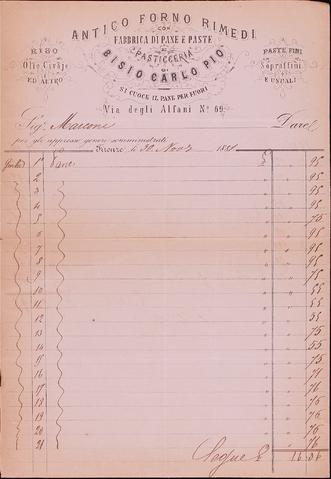 ANTICO FORNO RIMEDI
CON
FABBRICA DI PANE E PASTE
E
PASTICCERIA
DI
BISIO CARLO PIO
SI CUOCE IL PANE PER FUORI
RISO
Olio Civaje
ED ALTRO
PASTE FINI
Sopraffini
E USUALI
Via degli Alfani No 69
Sigr Marconi Dare
per gli appresso generi somministrati
Firenze li 30 Novz
1 Pane £ " 95
2 " 95
3 " 95
4 " 95
5 " 75
6 " 95
7 " 95
8 " 95
9 " 75
10 " 55
11 " 55
12 " 75
13 " 75
14 " 55
15 " 75
16 "
17 " 76
18 " 75
19 " 75
20 " 75
21 " 76
Segue £ 16